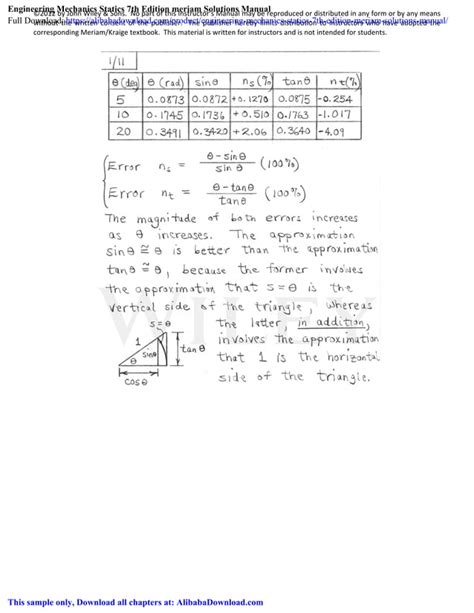 Engineering Mechanics Statics 7th Edition meriam Solutions Manual
©2011 by John Wiley & Sons. No part of this Instructor's Manual may be reproduced or distributed in any form or by any means
Full Download: https://alibabadownload.com/product/engineering-mechanics-statics-7th-edition-meriam-solutions-manual/
without the written consent of the publisher. The publisher hereby limits distribution to instructors who have adopted the
corresponding Meriam/Kraige textbook. This material is written for instructors and is not intended for students.
1/11
θ (deg) θ (rad) sinθ ns (%) tanθ nt (%)
5 0.0873 0.0872 +0.1270 0.0875 -0.254
10 0.1745 0.1736 +0.510 0.1763 -1.017
20 0.3491 0.3420 +2.06 0.3640 -4.09
Error ns = θ-sinθ / sinθ (100%)
Error nt = θ-tanθ / tanθ (100%)
The magnitude of both errors increases
as θ increases. The approximation
sinθ ≅ θ is better than the approximation
tanθ ≅ θ, because the former involves
the approximation that s=θ is the
vertical side of the triangle, whereas
the latter, in addition,
involves the approximation
that 1 is the horizontal
side of the triangle.
s=θ
1
sinθ
tan θ
θ
cosθ
WILEY
This sample only, Download all chapters at: AlibabaDownload.com